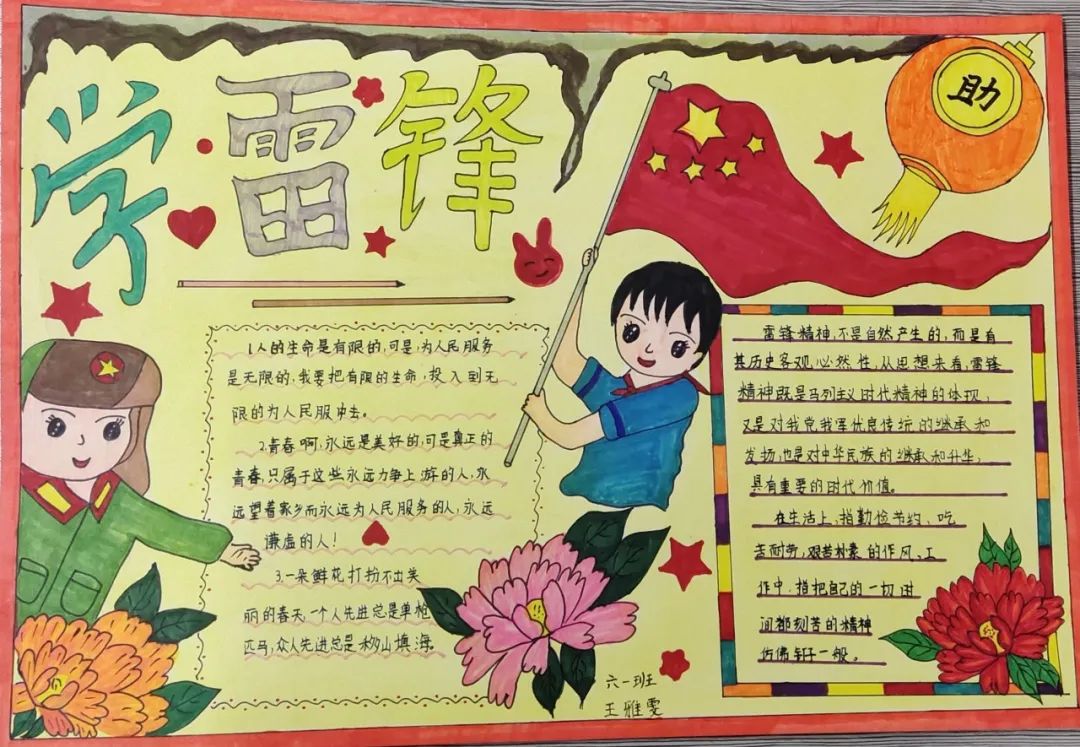 学雷锋
助
1.人的生命是有限的,可是,为人民服务
是无限的,我要把有限的生命,投入到无
限的为人民服中去。
2.青春啊,永远是美好的,可是真正的
青春,只属于这些永远力争上游的人,永
远望着家乡而永远为人民服务的人,永远
谦虚的人!
3.一朵鲜花打扮不出笑
丽的春天,一个人先进总是单枪
匹马,众人先进总是移山填海。
雷锋精神,不是自然产生的,而是有
其历史客观必然性,从思想来看,雷锋
精神既是马列主义时代精神的体现,
又是对我党我军优良传统的继承和
发扬,也是对中华民族的继承和升华,
具有重要的时代价值。
在生活上,指勤俭节约、吃
苦耐劳,艰苦朴素的作风、工
作中,指把自己的一切
间都刻苦的精神
仿佛钉子一般。
六一班
王雅雯